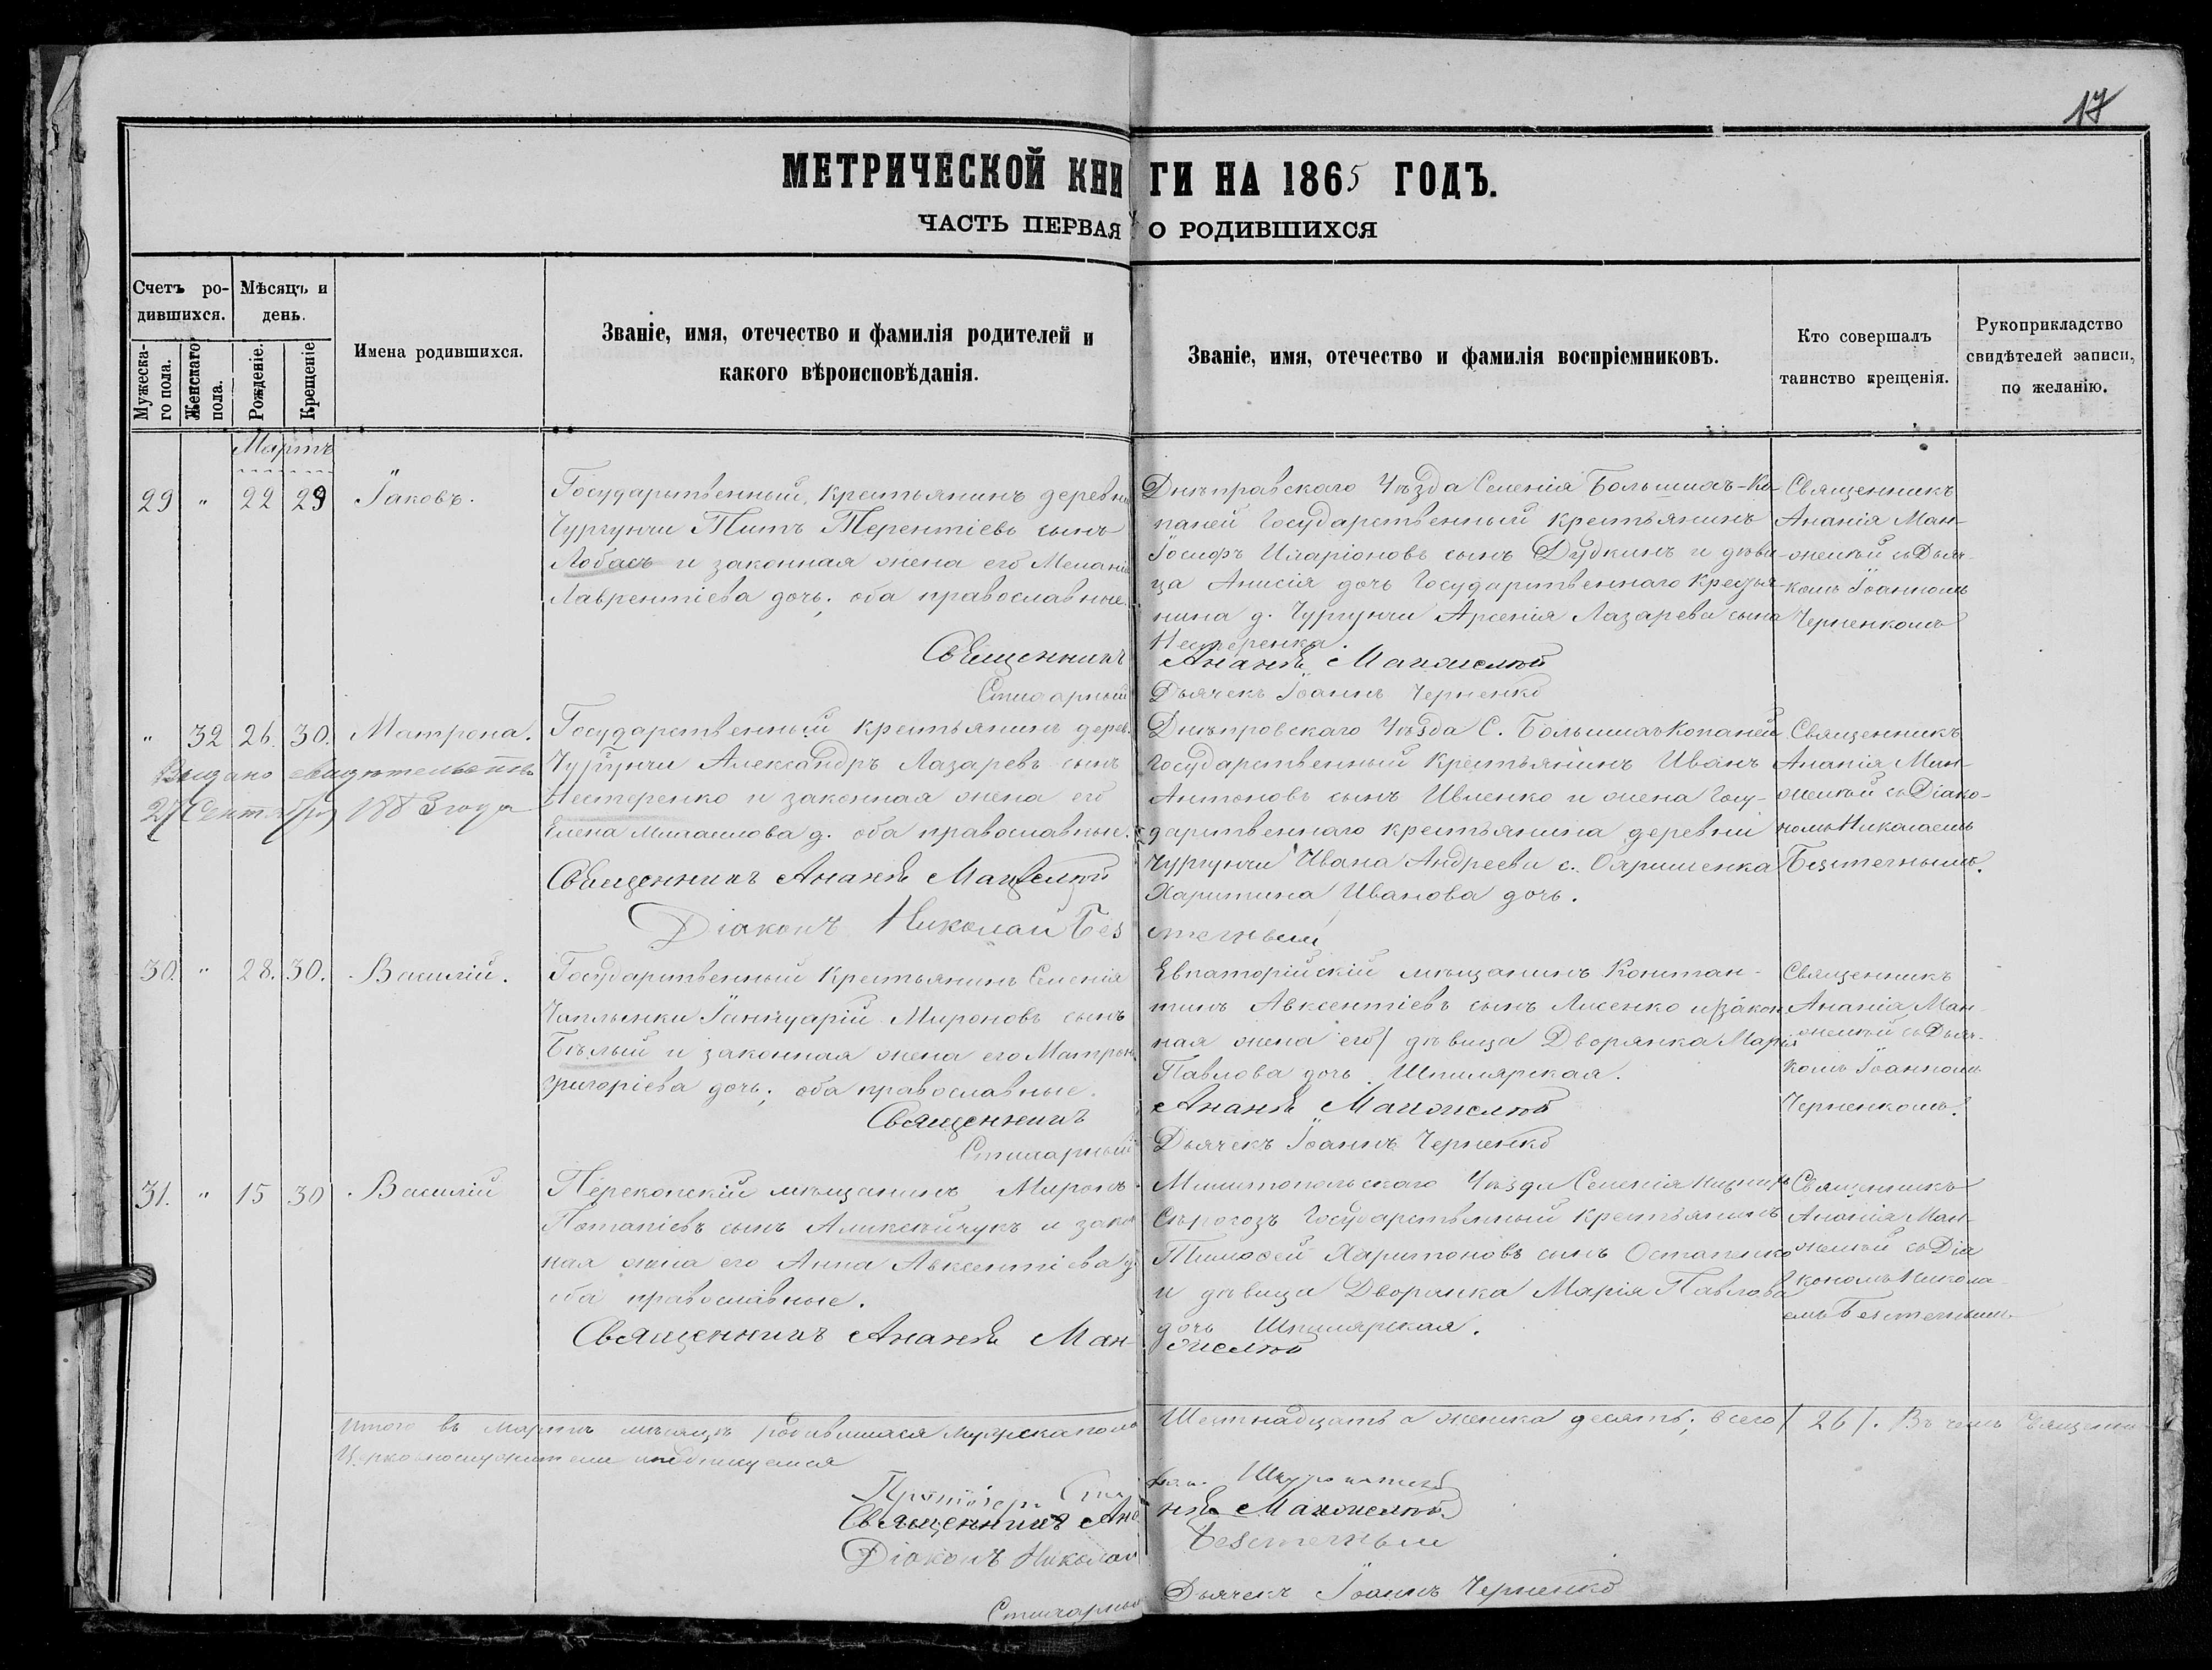 17
МЕТРИЧЕСКОЙ КНИГИ НА 1865 ГОДЪ.
ЧАСТЬ ПЕРВАЯ О РОДИВШИХСЯ
Счетъ родившихся.
Мужескаго пола.
Женскаго пола.
Мѣсяцъ и день.
Рожденіе.
Крещеніе
Имена родившихся.
Званіе, имя, отечество и фамилія родителей и
какого вѣроисповѣданія.
Званіе, имя, отечество и фамилія воспріемниковъ.
Кто совершалъ
таинство крещенія.
Рукоприкладство
свидѣтелей записи,
по желанію.
Мартъ
29 " 22 29 Іаковъ.
Государственный крестьянинъ деревни
Чургунчи Титъ Терентіевъ сынъ
Лобасъ и законная жена его Меланія
Лаврентіева дочь; оба православные.
Днѣпровскаго Уѣзда Селенія Большихъ-Ко-
паней Государственный крестьянинъ
Іосифъ Иларіоновъ сынъ Дудкинъ и дѣви-
ца Анисія дочь Государственнаго Крестья-
нина д. Чургунчи Арсенія Лазарева сына
Нестеренка.
Священникъ
Ананія Ман-
желѣй съ Дьяч-
комъ Іоанномъ
Черненкомъ
Священникъ Ананія Манжелѣй
Стихарный Дьячекъ Іоаннъ Черненко
" 32 26. 30. Матрона.
Выдано свидѣтельство
27 Сентября 1883 года
Государственный крестьянинъ дерев.
Чургунчи Александръ Лазаревъ сынъ
Нестеренко и законная жена его
Елена Михаилова д. оба православные.
Днѣпровскаго Уѣзда С. Большихъ Копаней
Государственный Крестьянинъ Иванъ
Антоновъ сынъ Ивленко и жена Госу-
дарственнаго крестьянина деревни
Чургунчи Ивана Андреева с.
Харитина Иванова дочь.
Священникъ
Ананія Ман-
желѣй съ Діако-
номъ Николаемъ
Безтечнымъ.
Священникъ Ананія Манжелѣй
Діаконъ Николай Безтечный
30. " 28. 30. Василій.
Государственный Крестьянинъ Селенія
Чаплынки Іаннуарій Мироновъ сынъ
Бѣлый и законная жена его Матрона
Григоріева дочь; оба православные.
Евпаторійскій мѣщанинъ Констан-
тинъ Авксентіевъ сынъ Лисенко и /закон-
ная жена его/ дѣвица Дворянка Марія
Павлова дочь Шпилярская.
Священникъ
Ананія Ман-
желѣй съ Дьяч-
комъ Іоанномъ
Черненкомъ.
Священникъ Ананія Манжелѣй
Стихарный Дьячекъ Іоаннъ Черненко
31. " 15 30 Василій
Перекопскій мѣщанинъ Миронъ
Потапіевъ сынъ Аликсѣйчукъ и закон
ная жена его Анна Авксентіева д.
оба православные.
Мелитопольскаго Уѣзда Селенія Нижнихъ
Сѣрогозъ Государственный крестьянинъ
Тимофей Харитоновъ сынъ Остапенко
и дѣвица Дворянка Марія Павлова
дочь Шпилярская.
Священникъ
Ананія Ман-
желѣй съ Діа
кономъ Никола-
емъ Безтечнымъ
Священникъ Ананія Манжелѣй
Итого въ Мартѣ мѣсяцѣ родившихся мужеска пола Шестнадцать а женска десять; всего /26/. Въ чемъ Священно
Церковнослужители подписуемся
Протоіер.
Священникъ Ананія Манжелѣй
Діаконъ Николай Безтечный
Стихарный Дьячекъ Іоаннъ Черненко